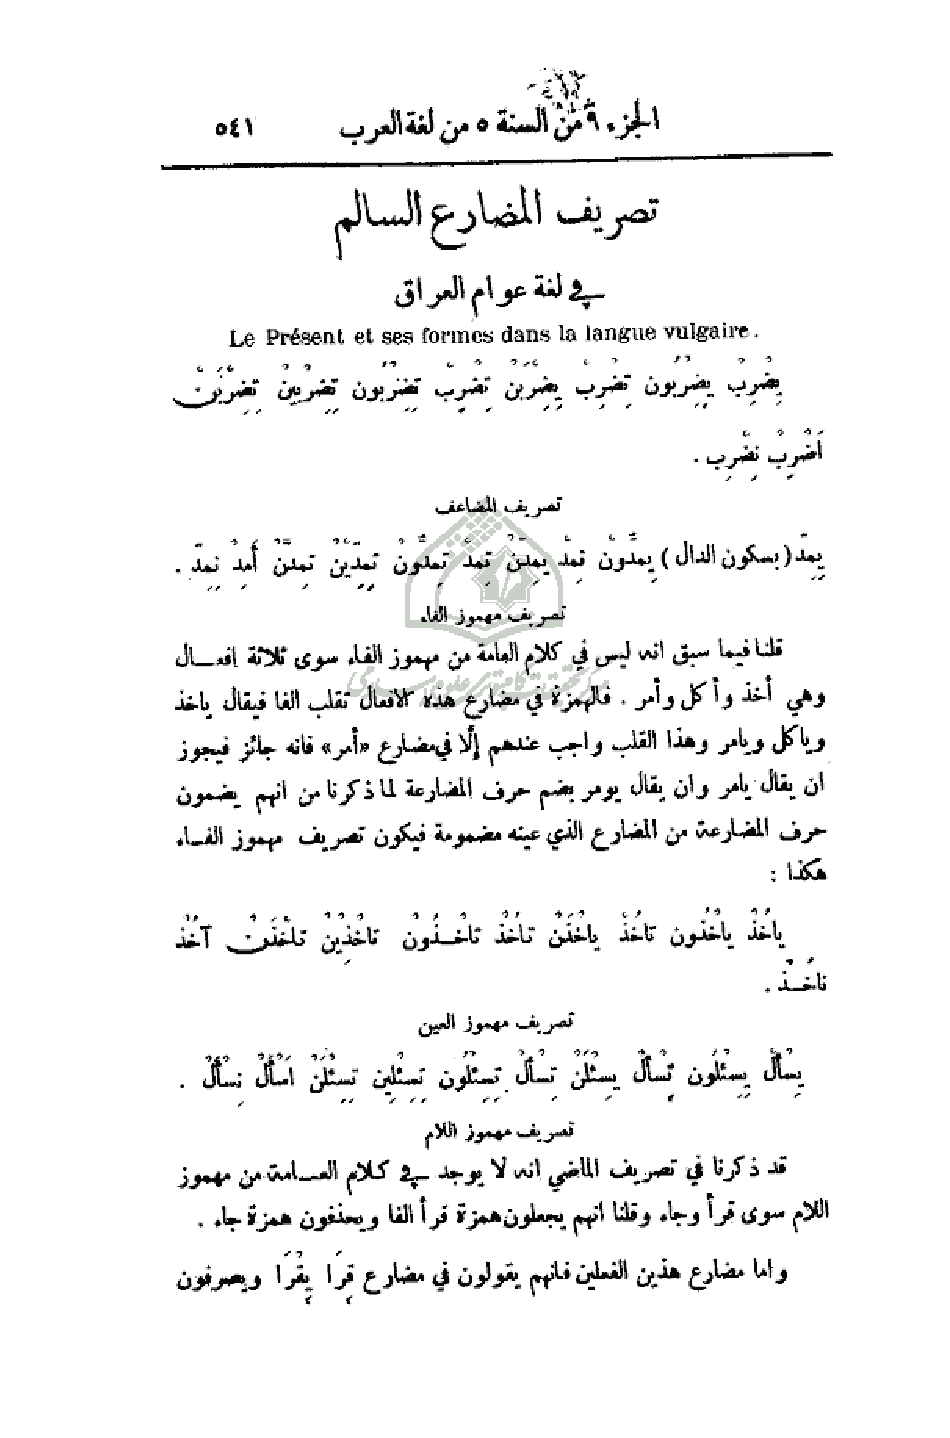 الجزء ٩ من السنة ٥ من لغة العرب ٥٤١
تصريف المضارع السالم
في لغة عوام العراق
Le Présent et ses formes dans la langue vulgaire.
يِضْرِبْ يِضِرْبُون تِضْرِبْ يِضِرْبَنْ تِضْرِبْ تِضِرْبُون تِضِرْبِينْ تِضِرْبَنْ
اَضْرِبْ نِضْرِب .
تصريف المضاعف
يِمِدّ (بسكون الدال) يِمِدُّونْ تِمِدّْ يِمِدَّنْ تِمِدّْ تِمِدُّونْ تِمِدِّيْنْ تِمِدَّنْ أَمِدّْ نِمِدّ .
تصريف مهموز الفاء
قلنا فيما سبق انه ليس في كلام العامة من مهموز الفاء سوى ثلاثة افعال
وهي أخذ وأكل وأمر . فالهمزة في مضارع هذه الافعال تقلب الفا فيقال ياخذ
وياكل ويامر وهذا القلب واجب عندهم إلّا في مضارع «أمر» فانه جائز فيجوز
ان يقال يامر وان يقال يومر بضم حرف المضارعة لما ذكرنا من انهم يضمون
حرف المضارعة من المضارع الذي عينه مضمومة فيكون تصريف مهموز الفاء
هكذا :
ياخُذْ ياخْذون تاخُذْ ياخْذَنْ تاخُذْ تاخْذُونْ تاخْذِيْنْ تاخْذَنْ آخُذْ
ناخُذْ .
تصريف مهموز العين
يِسْأَلْ يِسِئْلُون تِسْأَلْ يِسِئْلَنْ تِسْأَلْ تِسِئْلُون تِسِئْلين تِسِئْلَنْ اَسْأَلْ نِسْأَلْ .
تصريف مهموز اللام
قد ذكرنا في تصريف الماضي انه لا يوجد في كلام العامة من مهموز
اللام سوى قرأ وجاء وقلنا انهم يجعلون همزة قرأ الفا ويحذفون همزة جاء .
واما مضارع هذين الفعلين فانهم يقولون في مضارع قِرَا يِقْرَا ويصرفون